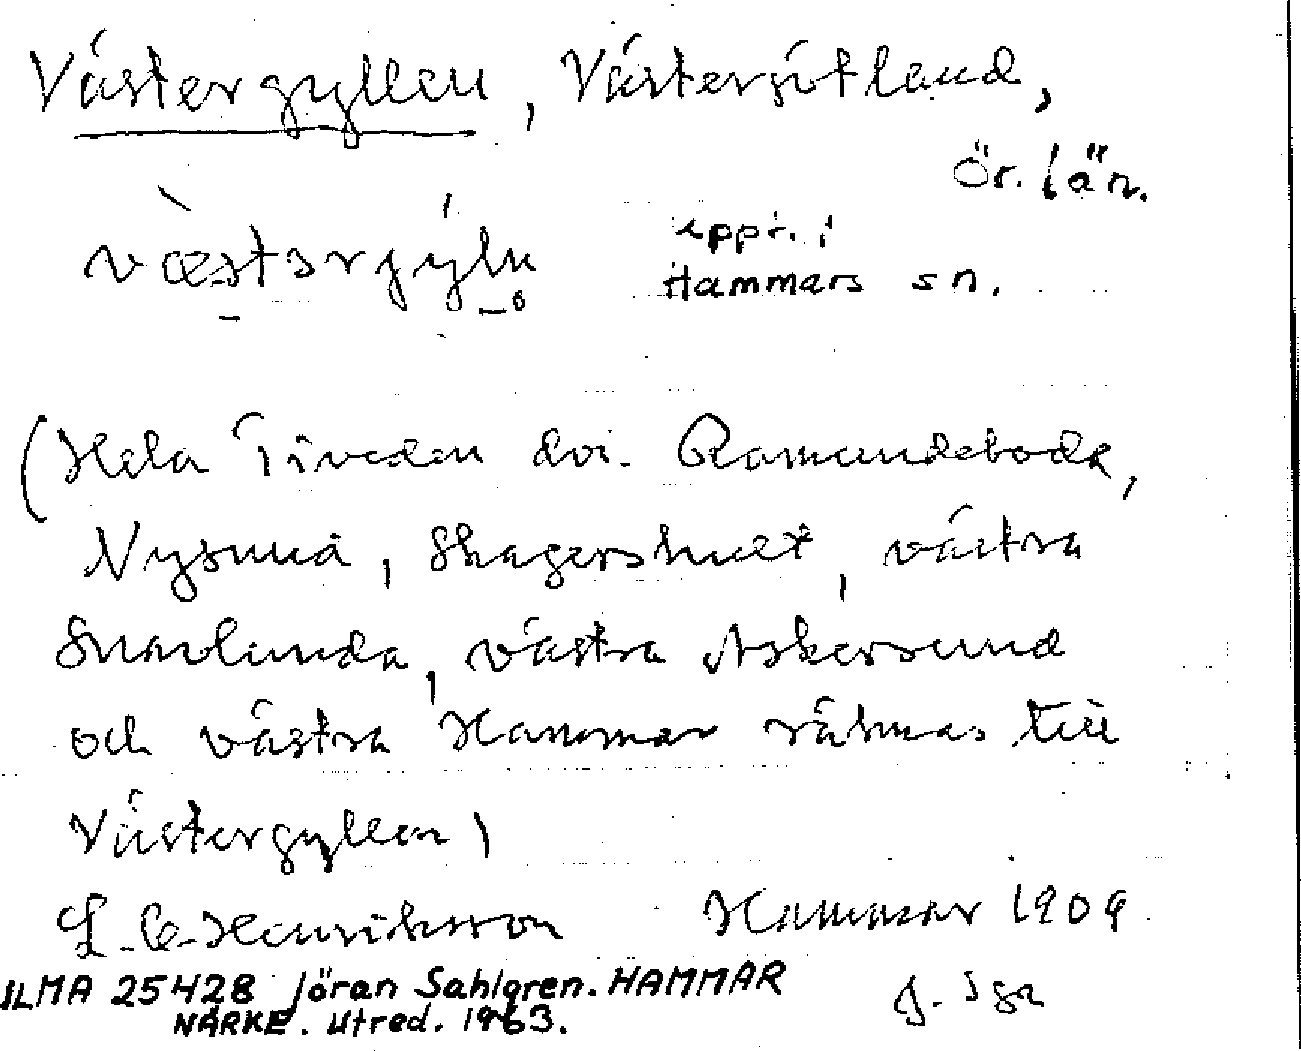 Västergyllen, Västergötland,
Ör. län.
uppt. i
Hammars sn.
(Hela Tiveden dvs. Ramundeboda,
Nysund, Skagershult, västra
Snavlunda, västra Askersund
och västra Hammar räknas till
Västergyllen)
L. C. Henriksson Hammar 1909
ULMA 25428 Jöran Sahlgren. HAMMAR
NÄRKE. Utred. 1963.
J. Sgn